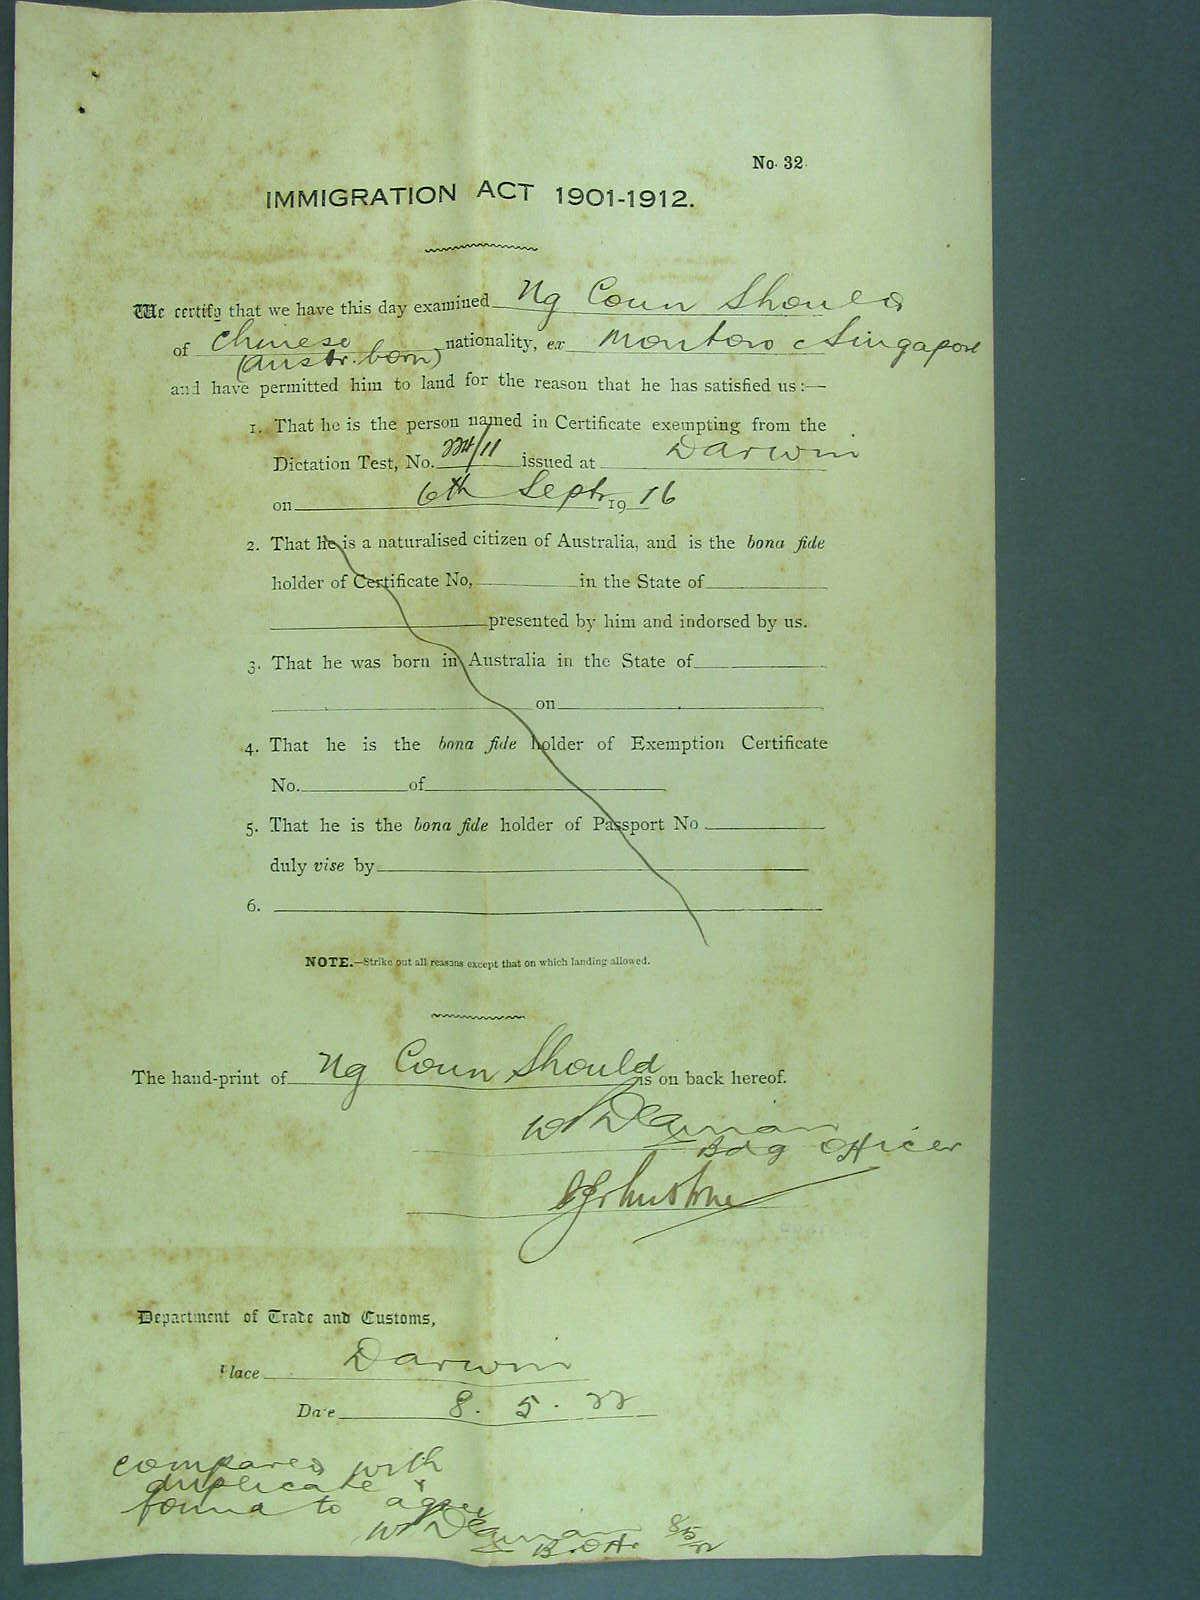 No. 32.
IMMIGRATION ACT 1901-1912.
We certify that we have this day examined Ng Coun Should
of Chinese nationality, ex Montoro c Singapore
(Austr. born)
and have permitted him to land for the reason that he has satisfied us:—
1. That he is the person named in Certificate exempting from the
Dictation Test, No. 224/11 issued at Darwin
on 6th Septr 19 16
2. That he is a naturalised citizen of Australia, and is the bona fide
holder of Certificate No, in the State of
presented by him and indorsed by us.
3. That he was born in Australia in the State of
on
4. That he is the bona fide holder of Exemption Certificate
No. of
5. That he is the bona fide holder of Passport No
duly vise by
6.
NOTE.—Strike out all reasons except that on which landing allowed.
The hand-print of Ng Coun Should is on back hereof.
Bdg Officer
Johnstone
Department of Trade and Customs,
Place Darwin
Date 8. 5. 22
compared with
duplicate &
found to agree
B. Off. 8/5/22